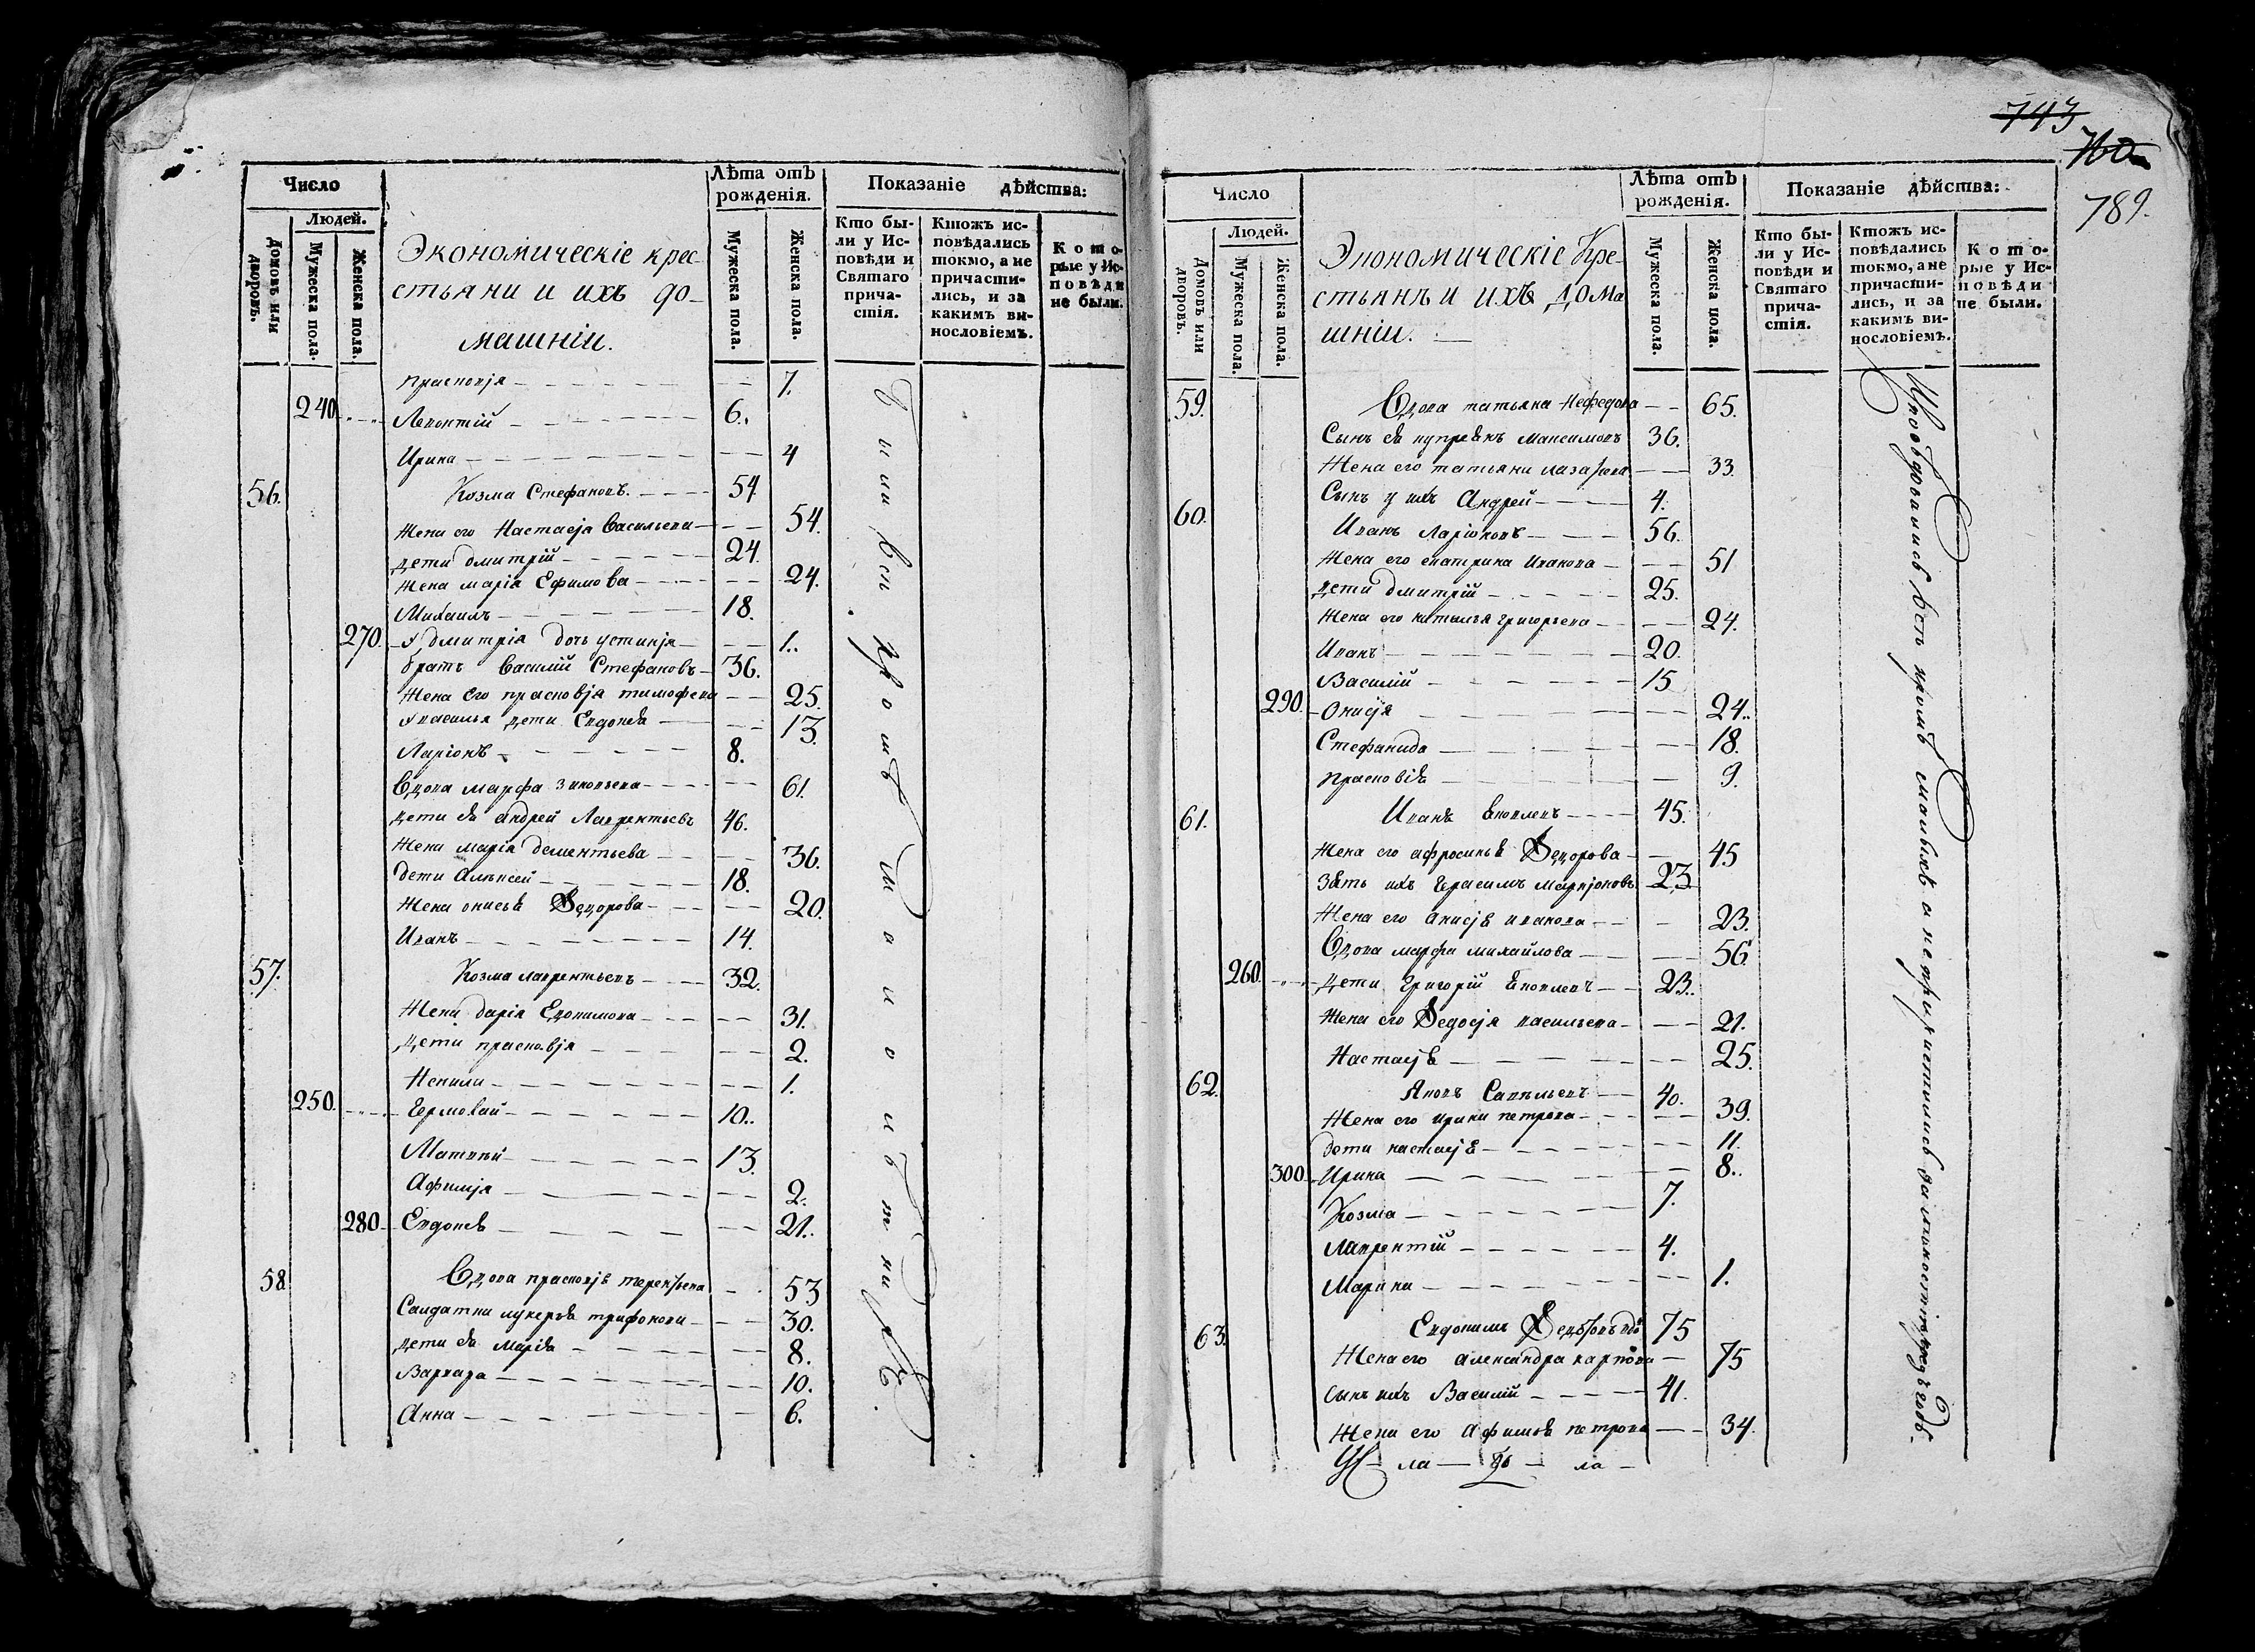 Число
Людей.
Домовъ или дворовъ.
Мужеска пола.
Женска пола.
Экономическіе крес-
стьяни и ихъ до-
машніи.
Лѣта отъ рожденія.
Мужеска пола.
Женска пола.
Показаніе дѣйства:
Кто бы-
ли у Ис-
повѣди и
Святаго
прича-
стія.
Ктожъ ис-
повѣдались
токмо, а не
причасти-
лись, и за
какимъ ви-
нословіемъ.
Кото-
рые у Ис-
повѣди
не были.
Прасковія 7.
240. Леконтій 6.
Ирина 4
56. Козма Стефановъ. 54
Жена его Настасія Васильева 54.
Дети Дмитрій 24.
Жена Марія Ефимова 24.
Михаилъ 18.
270. У Дмитрія дочь Устинія 1.
братъ Василій Стефановъ 36.
Жена его Прасковія Тимофева 25.
У Василья дети Евдокея 13.
Ларіонъ 8.
Вдова Марфа Зиновьева 61.
Дети ея Андрей Лаврентьевъ 46.
Жена Марія Дементьева 36.
Дети Алѣксей 18.
Жена Онисья Ѳедорова 20.
Иванъ 14.
57. Козма Лаврентьевъ 32.
Жена Дарія Евдокимова 31.
Дети Прасковія 2.
Ненила 1.
250. Ермолай 10.
Матвѣй 13.
Афимія 2.
280. Евдокея 21.
58. Вдова Прасковія Терентьева 53
Салдатка Лукерья Трифонова 30.
Дети ея Марія 8.
Варвара 10.
Анна 6.
Были вси кромѣ малолѣтнихъ.
743
760
789.
Число
Людей.
Домовъ или дворовъ.
Мужеска пола.
Женска пола.
Экономическіе Кре-
стьянъ и ихъ дома
шніи.
Лѣта отъ рожденія.
Мужеска пола.
Женска пола.
Показаніе дѣйства:
Кто бы-
ли у Ис-
повѣди и
Святаго
прича-
стія.
Ктожъ ис-
повѣдались
токмо, а не
причасти-
лись, и за
какимъ ви-
нословіемъ.
Кото-
рые у Ис-
повѣди
не были.
59. Вдова Татьяна Нефедова 65.
Сынъ ея Купреянъ Максимовъ 36.
Жена его Татьяна Лазарева 33.
Сынъ у ихъ Андрей 4.
60. Иванъ Ларіоновъ 56.
Жена его Екатерина Иванова 51
Дети Дмитрій 25.
Жена его Наталья Григорьева 24.
Иванъ 20.
Василій 15
290. Онисія 24.
Стефанида 18.
Прасковія 9.
61. Иванъ Яковлевъ 45.
Жена его Афросинья Ѳедорова 45
Зять ихъ Герасимъ 23
Жена его Анисія Иванова 23.
Вдова Марфа Михайлова 56.
260. Дети Григорій Яковлевъ 23.
Жена его Ѳедосія Васильева 21.
Настасія 25.
62. Яковъ Савельевъ 40.
Жена его Ирина Петрова 39.
Дети Настасія 11.
300. Ирина 8.
Козма 7.
Лаврентій 4.
Марина 1.
63. Евдокимъ 75
Жена его Александра Карпова 75
Сынъ ихъ Василій 41.
Жена его Афимья Петрова 34.
Исповѣдовались вси кромѣ малыхъ а непричастились